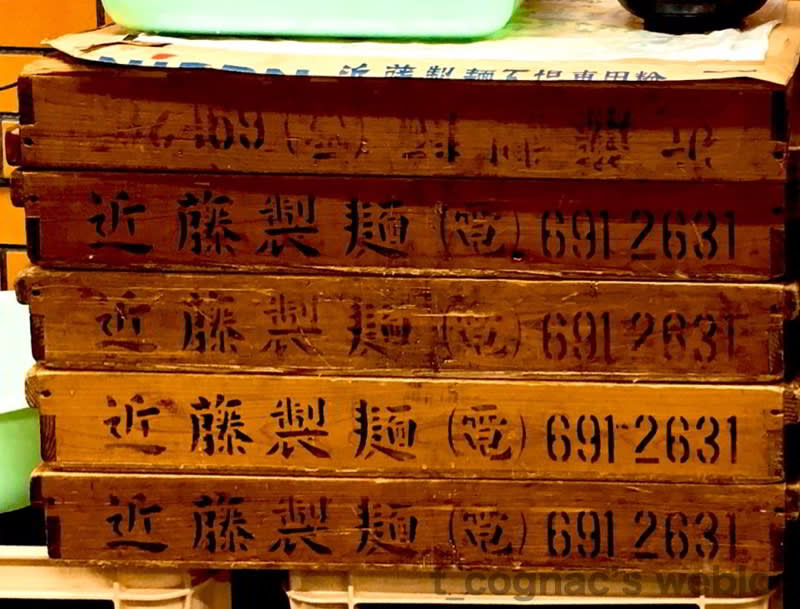 NIPPN 近藤製麺
近藤製麺(電)691 2631
近藤製麺(電)691 2631
近藤製麺(電)691-2631
近藤製麺(電)691 2631
t_cognac's weblo